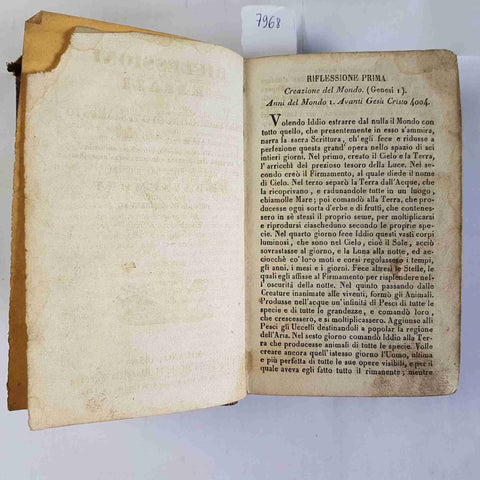 7968
RIFLESSIONE PRIMA
Creazione del Mondo. (Genesi 1).
Anni del Mondo 1. Avanti Gesù Cristo 4004.
Volendo Iddio estrarre dal nulla il Mondo con
tutto quello, che presentemente in esso s'ammira,
narra la sacra Scrittura, ch'egli fece e ridusse a
perfezione questa grand'opera nello spazio di sei
intieri giorni. Nel primo, creato il Cielo e la Terra,
l'arricchì del prezioso tesoro della Luce. Nel se-
condo creò il Firmamento, al quale diede il nome
di Cielo. Nel terzo separò la Terra dall'Acque, che
la ricoprivano, e radunandole tutte in un luogo,
chiamolle Mare; poi comandò alla Terra, che pro-
ducesse ogni sorta d'erbe e di frutti, che contenes-
sero in sè stessi il proprio seme, per moltiplicarsi
e riprodursi ciascheduno secondo le proprie spe-
cie. Nel quarto giorno fece Iddio questi vasti corpi
luminosi, che sono nel Cielo, cioè il Sole, acciò
sovrastasse al giorno, e la Luna alla notte, ed ac-
ciocchè co' loro moti e corsi regolassero i tempi,
gli anni, i mesi e i giorni. Fece altresì le Stelle, le
quali egli affisse al Firmamento per risplendere nel-
l'oscurità della notte. Nel quinto passando dalle
Creature inanimate alle viventi, formò gli Animali.
Produsse nell'acque un'infinità di Pesci di tutte le
specie e di tutte le grandezze, e comandò loro,
che crescessero, e si moltiplicassero. Aggiunse alli
Pesci gli Uccelli destinandoli a popolar la regione
dell'Aria. Nel sesto giorno comandò Iddio alla Ter-
ra che producesse animali di tutte le specie. Volle
creare ancora quell'istesso giorno l'Uomo, ultima
e più perfetta di tutte le sue opere visibili, e per il
quale aveva egli fatto tutto il rimanente; mentre